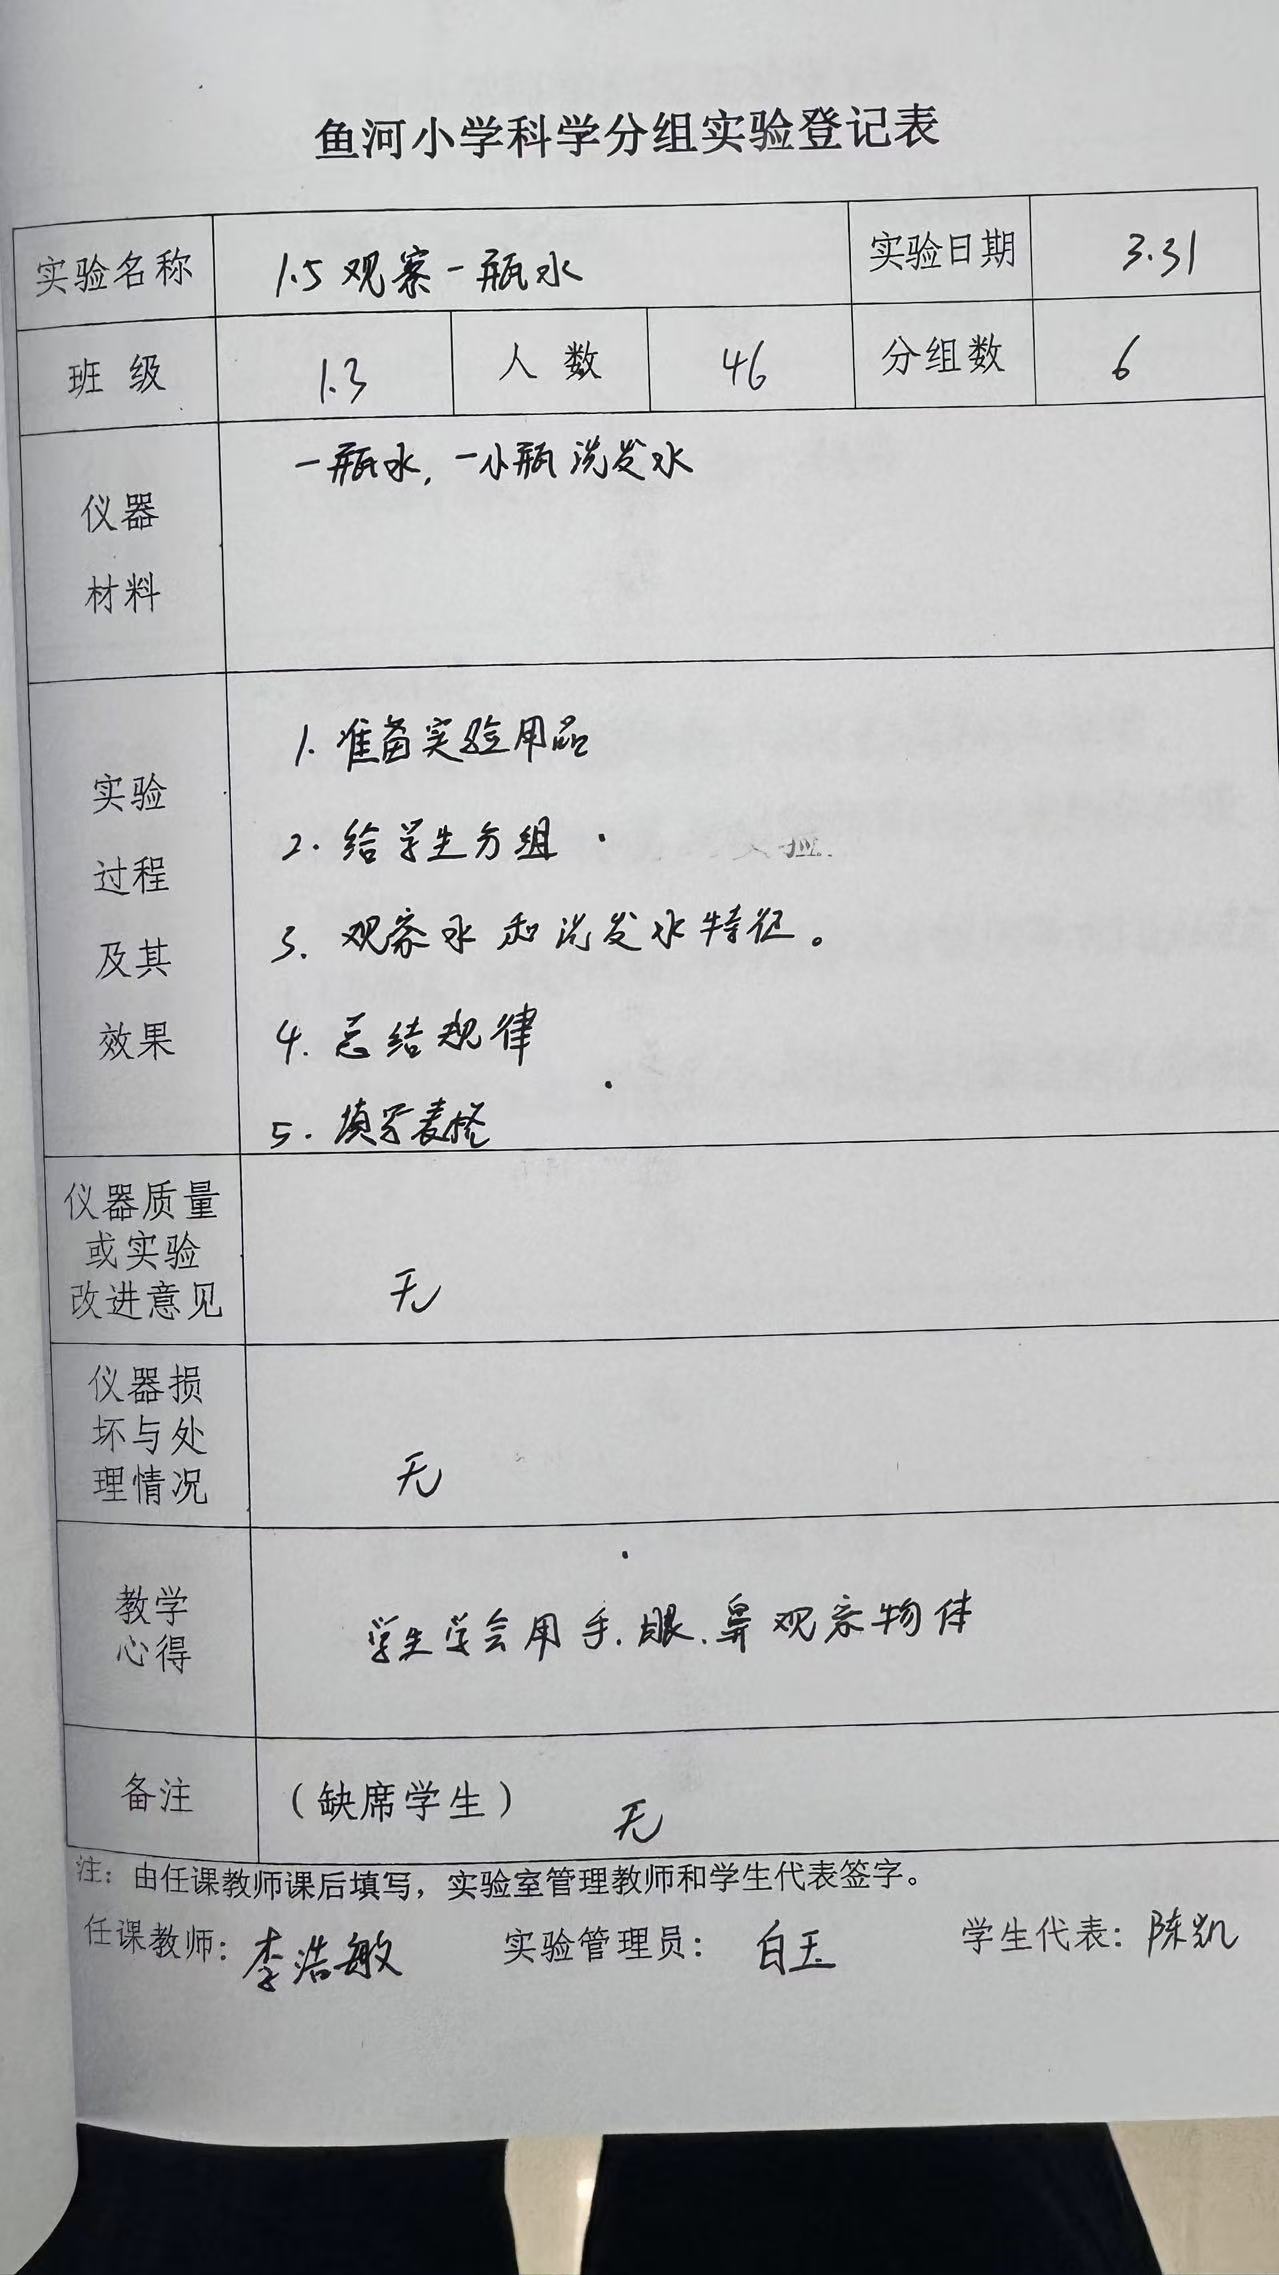 鱼河小学科学分组实验登记表
实验名称 1.5 观察一瓶水 实验日期 3.31
班 级 1.3 人 数 46 分组数 6
仪器
材料
一瓶水, 一小瓶洗发水
实验
过程
及其
效果
1. 准备实验用品
2. 给学生分组
3. 观察水和洗发水特征。
4. 总结规律
5. 填写表格
仪器质量
或实验
改进意见
无
仪器损
坏与处
理情况
无
教学
心得
学生学会用手、眼、鼻观察物体
备注 (缺席学生) 无
注：由任课教师课后填写，实验室管理教师和学生代表签字。
任课教师: 李浩敏 实验管理员: 白玉 学生代表: 陈凯